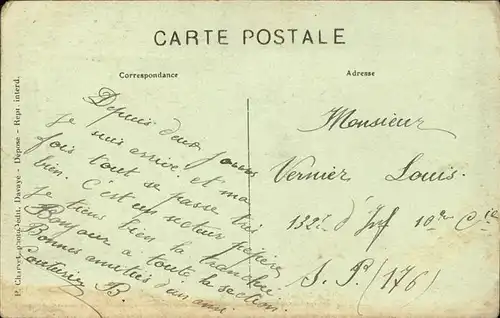 CARTE POSTALE
Correspondance
Depuis deux jours
je suis arrivé et ma
fois tout se passe très
bien. C'est un secteur pépère
je tiens bien la tranchée
Bonjour a toute la section.
Bonnes amitiés d'un ami
B.
Adresse
Monsieur
Vernier Louis.
132e d'Inf 10e Cie
S. P. (176)
P. Charvet, édit. Davayé - Déposé - Repr. interd.